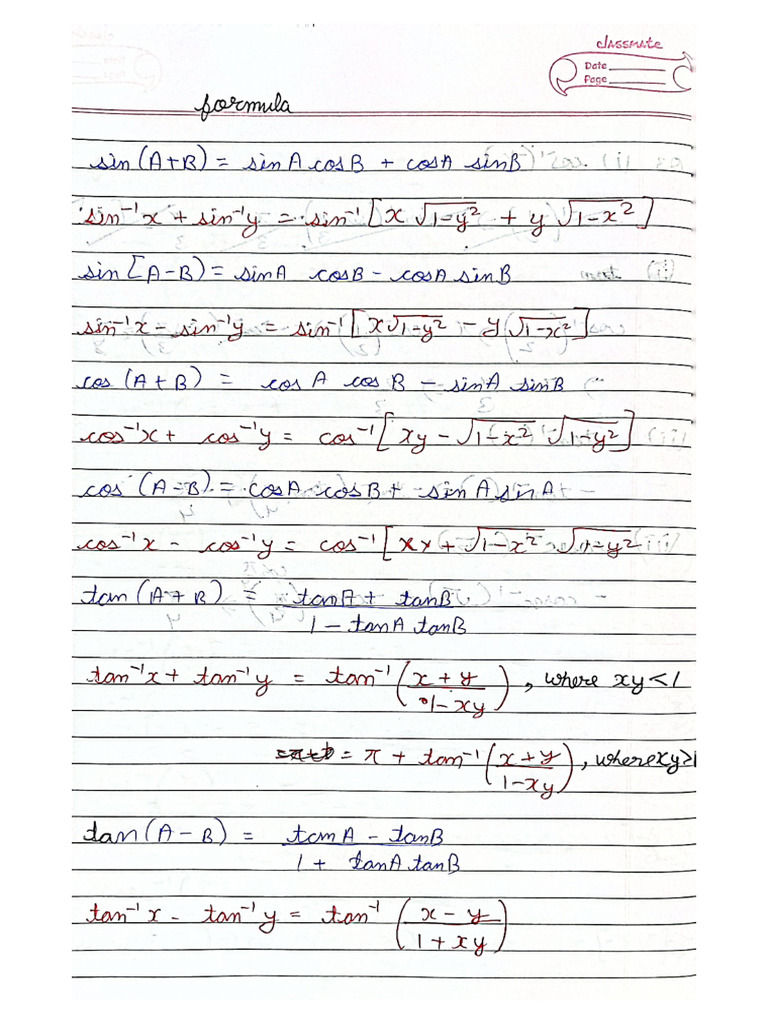 classmate
Date
Page
formula
sin(A+B) = sinA cosB + cosA sinB
sin⁻¹x + sin⁻¹y = sin⁻¹[x √1-y² + y √1-x²]
sin[A-B) = sinA cosB - cosA sinB
sin⁻¹x - sin⁻¹y = sin⁻¹[x√1-y² - y√1-x²]
cos(A+B) = cosA cosB - sinA sinB
cos⁻¹x + cos⁻¹y = cos⁻¹[xy - √1-x² √1-y²]
cos(A-B) = cosA cosB + sinA sinA
cos⁻¹x - cos⁻¹y = cos⁻¹[xy + √1-x² √1-y²
tan(A+B) = tanA + tanB
1 - tanA tanB
tan⁻¹x + tan⁻¹y = tan⁻¹(x+y / 1-xy), where xy<1
= π + tan⁻¹(x+y / 1-xy), where xy>1
tan(A-B) = tanA - tanB
1 + tanA tanB
tan⁻¹x - tan⁻¹y = tan⁻¹(x-y / 1+xy)